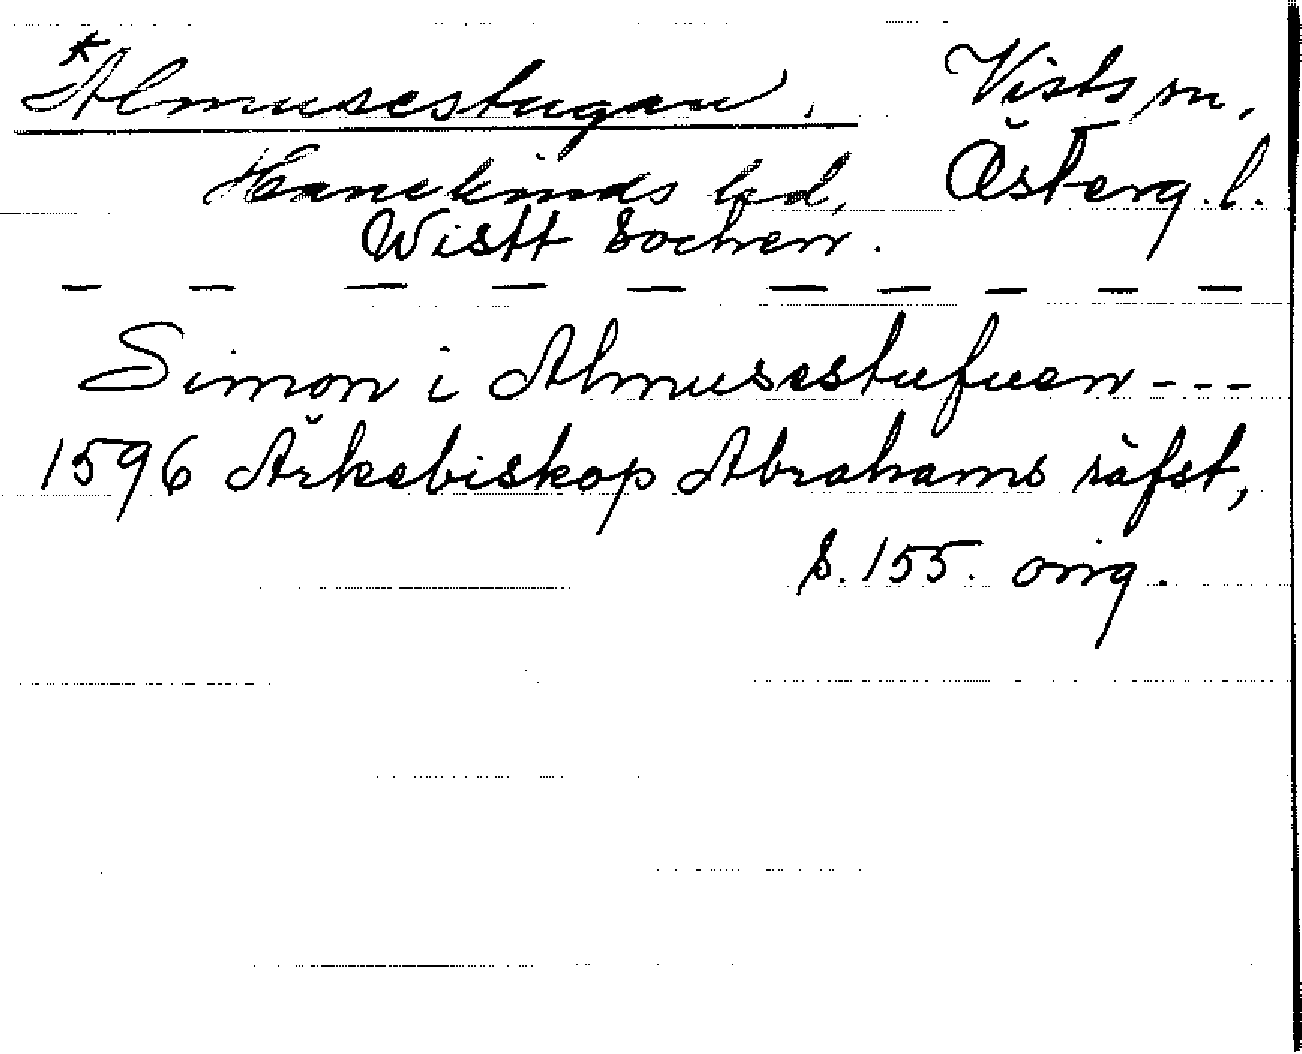 *Almusestugan. Vists sn,
Hanekinds hd, Österg. l.
Wistt Sochen.
— — — — — — — — — —
Simon i Almusestufuen ---
1596 Ärkebiskop Abrahams räfst,
s. 155. orig.